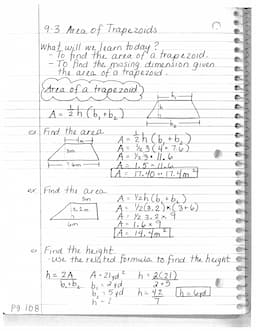 9-3 Area of Trapezoids
What will we learn today?
- To find the area of a trapezoid.
- To find the missing dimension given
the area of a trapezoid.
Area of a trapezoid
b₁
h
b₂
A = ½h (b₁ + b₂)
ex Find the area
4m
3m
7.6m
A = ½h (b₁ + b₂)
A = ½·3(4+7.6)
A = ½·3·11.6
A = 1.5·11.6
A = 17.40 = 17.4m²
ex Find the area
3m
3.2m
6m
A = ½h (b₁ + b₂)
A = ½(3.2)×(3+6)
A = ½ 3.2 × 9
A = 1.6 × 9
A = 14.4m²
ex Find the height
- use the related formula to find the height
h = 2A
b₁ + b₂
A = 21yd²
b₁ = 2yd
b₂ = 5yd
h = ?
h = 2(21)
2+5
h = 42
7
h = 6yd
Pg 108